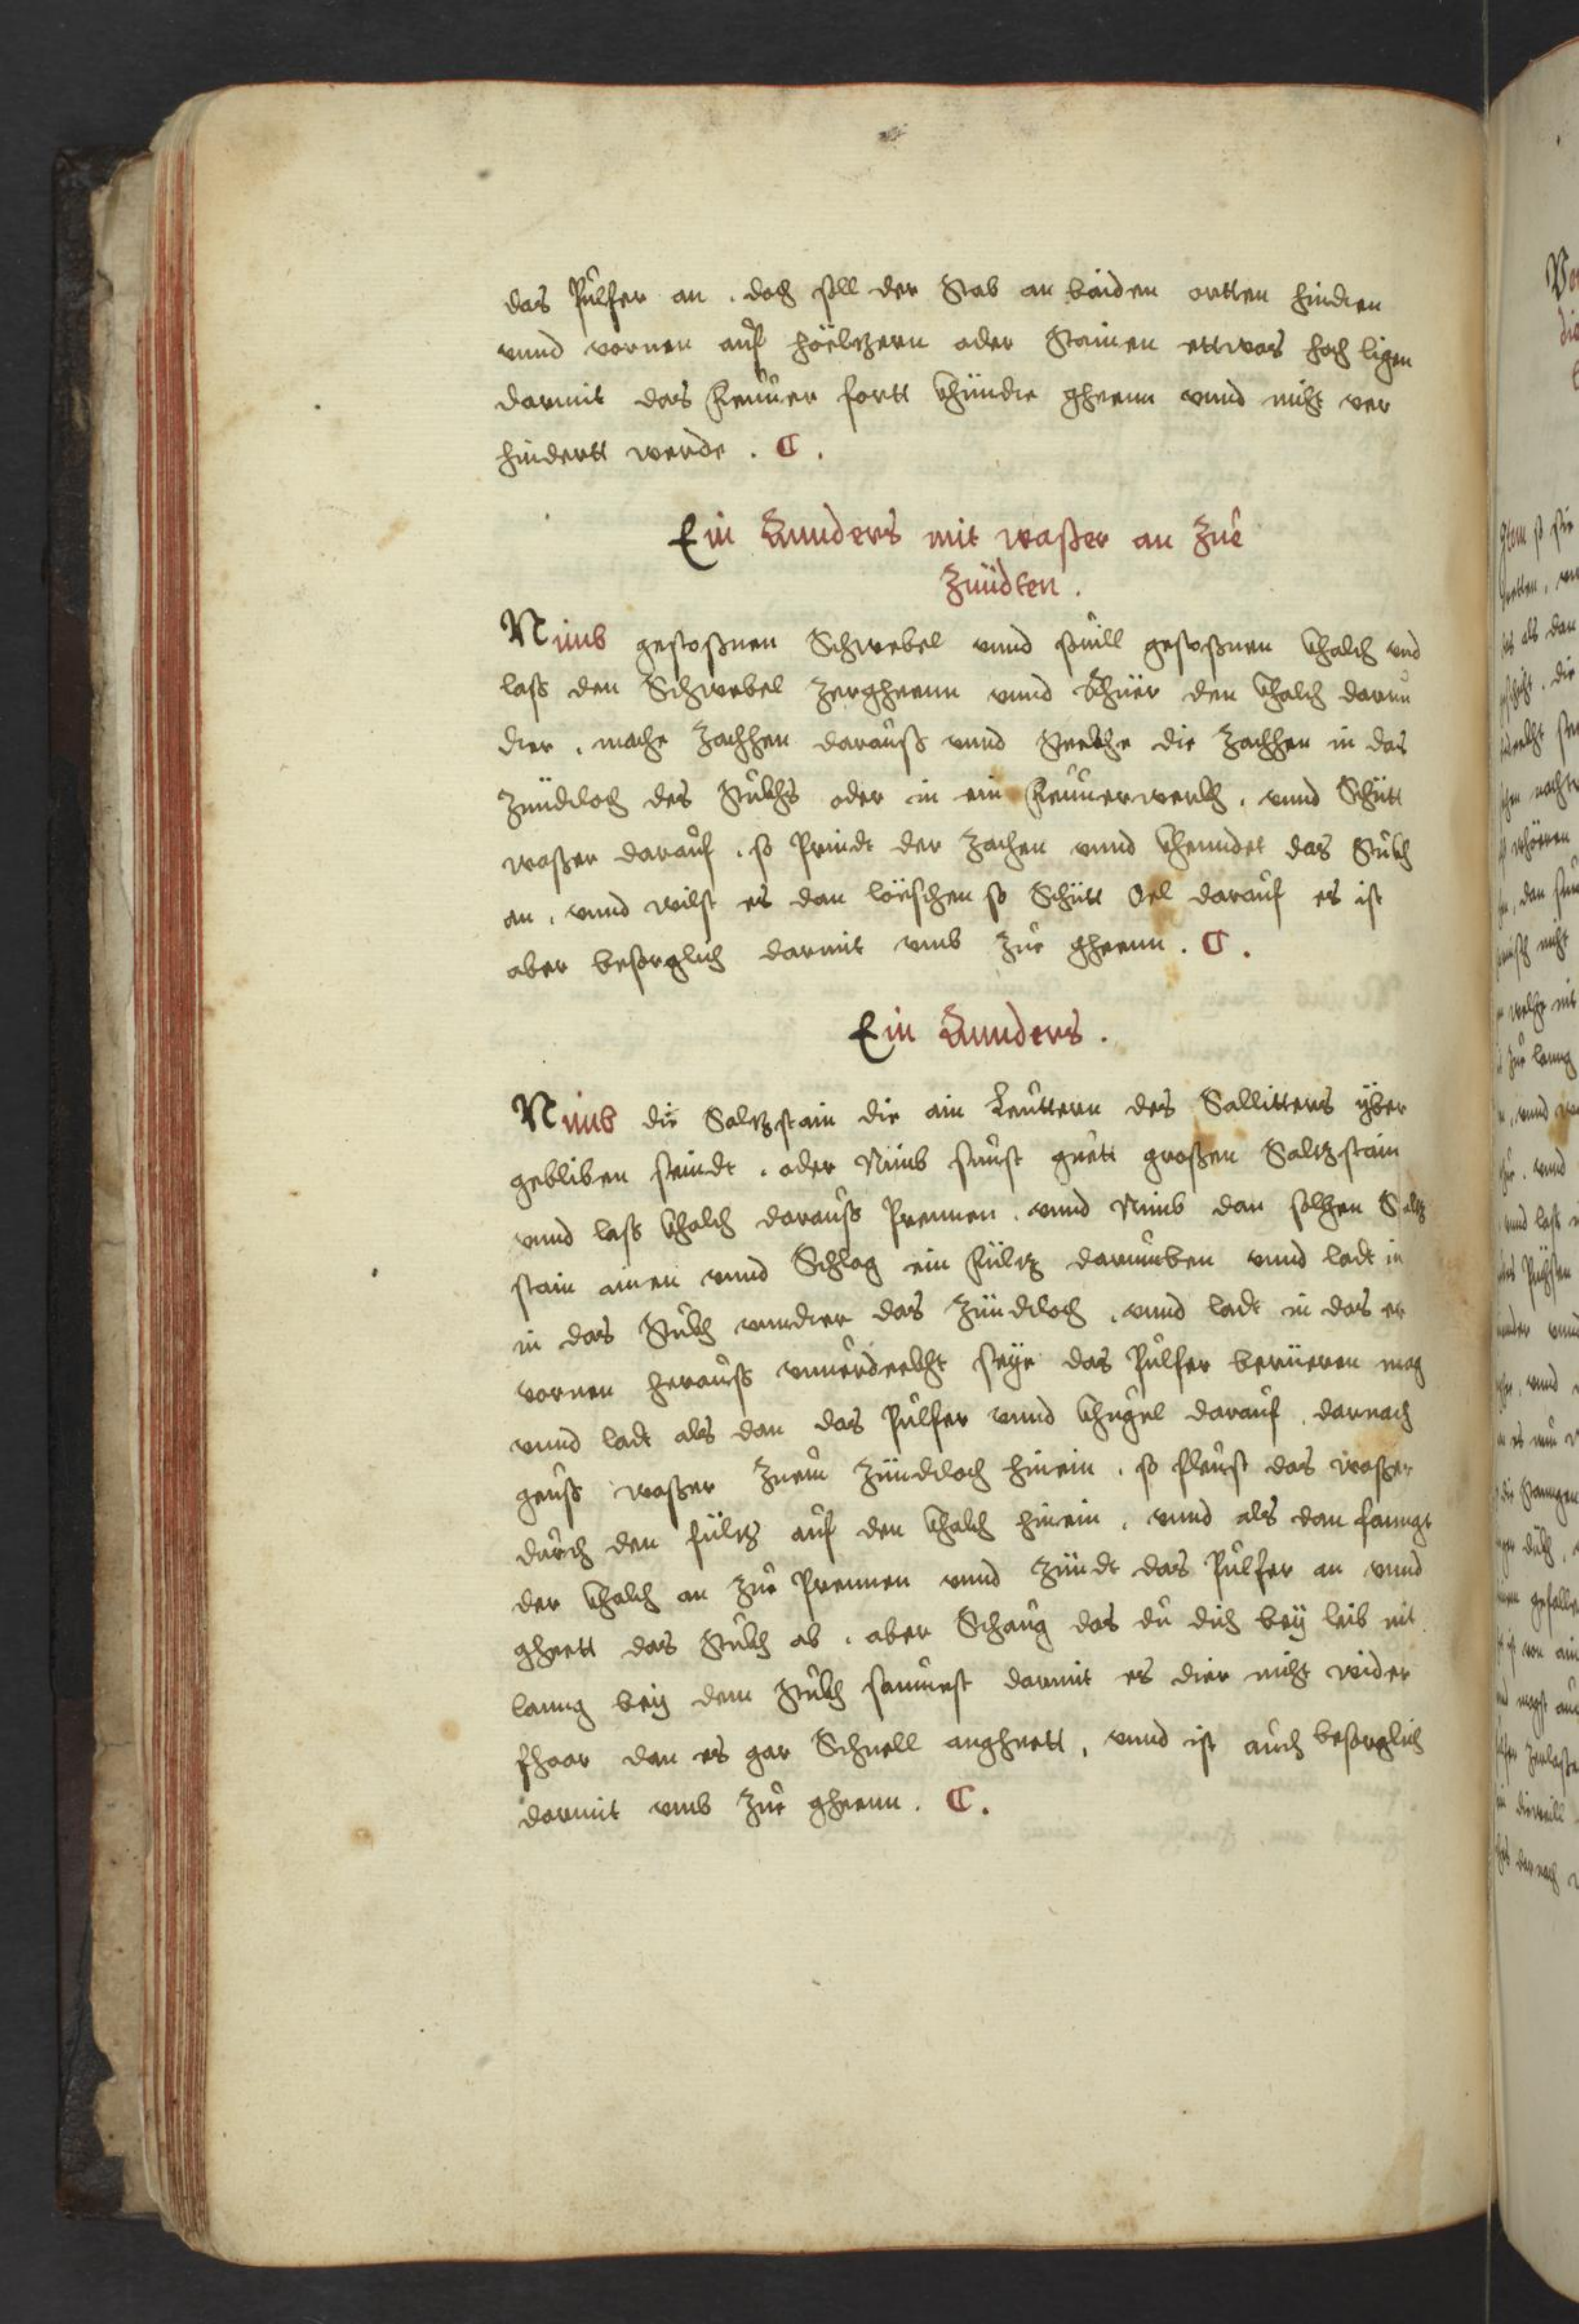 das Pulfer an . doch soll der Stab an baiden ortten hindten
vnnd vornen auf höeltzern oder Stainen ettwas hoch ligen
darmit das Feuuer fortt khündte gheenn vnnd nicht ver
hindertt werde . C .
Ein Annders mit waßer an Zue
Zündten .
Nimb gestoßnen Schwebel vnnd souill gestoßnen khalch vnd
lass den Schwebel Zergheenn vnnd Rhüer den khalch darun
dter . mache Zachhen darauss vnnd Steckhe die Zachhen in das
Zündtloch des Stuckhs oder in ein Feuuerwerch . vnnd Schütt
waßer darauf . so Prindt der Zachen vnnd khenndet das Stuckh
an . vnnd wilst es dan löeschen so Schütt Oel darauf es ist
aber besorglich darmit vmb Zue gheenn . C .
Ein Annders .
Nimb die Saltzstain die ain Leuttern des Sallitters yber
gebliben seindt . oder Nimb sunst guett großen Saltzstain
vnnd lass khalch darauss Prennen . vnnd Nimb dan solhen Saltz
stain ainen vnnd Schlag ein Fültz darumben vnnd ladt in
in das Stuckh vnndter das Zündtloch . vnnd ladt in das er
vornen herauss vnuerdeckht seye das Pulfer berüeren mag
vnnd ladt als dan das Pulfer vnnd khugel darauf . darnach
geuss waßer Zuem Zündtloch hinein . so fleust das waßer
durch den fültz auf den khalch hinein . vnnd als dan fanngt
der khalch an Zue Prennen vnnd Zündt das Pulfer an vnnd
gheett das Stuckh ab . aber Schaug das du dich bey leib nit
lanng bey dem Stuckh saumest darmit es dier nicht wider
fhaar dan es gar Schnell angheett , vnnd ist auch besorglich
darmit vmb Zue gheenn . C .